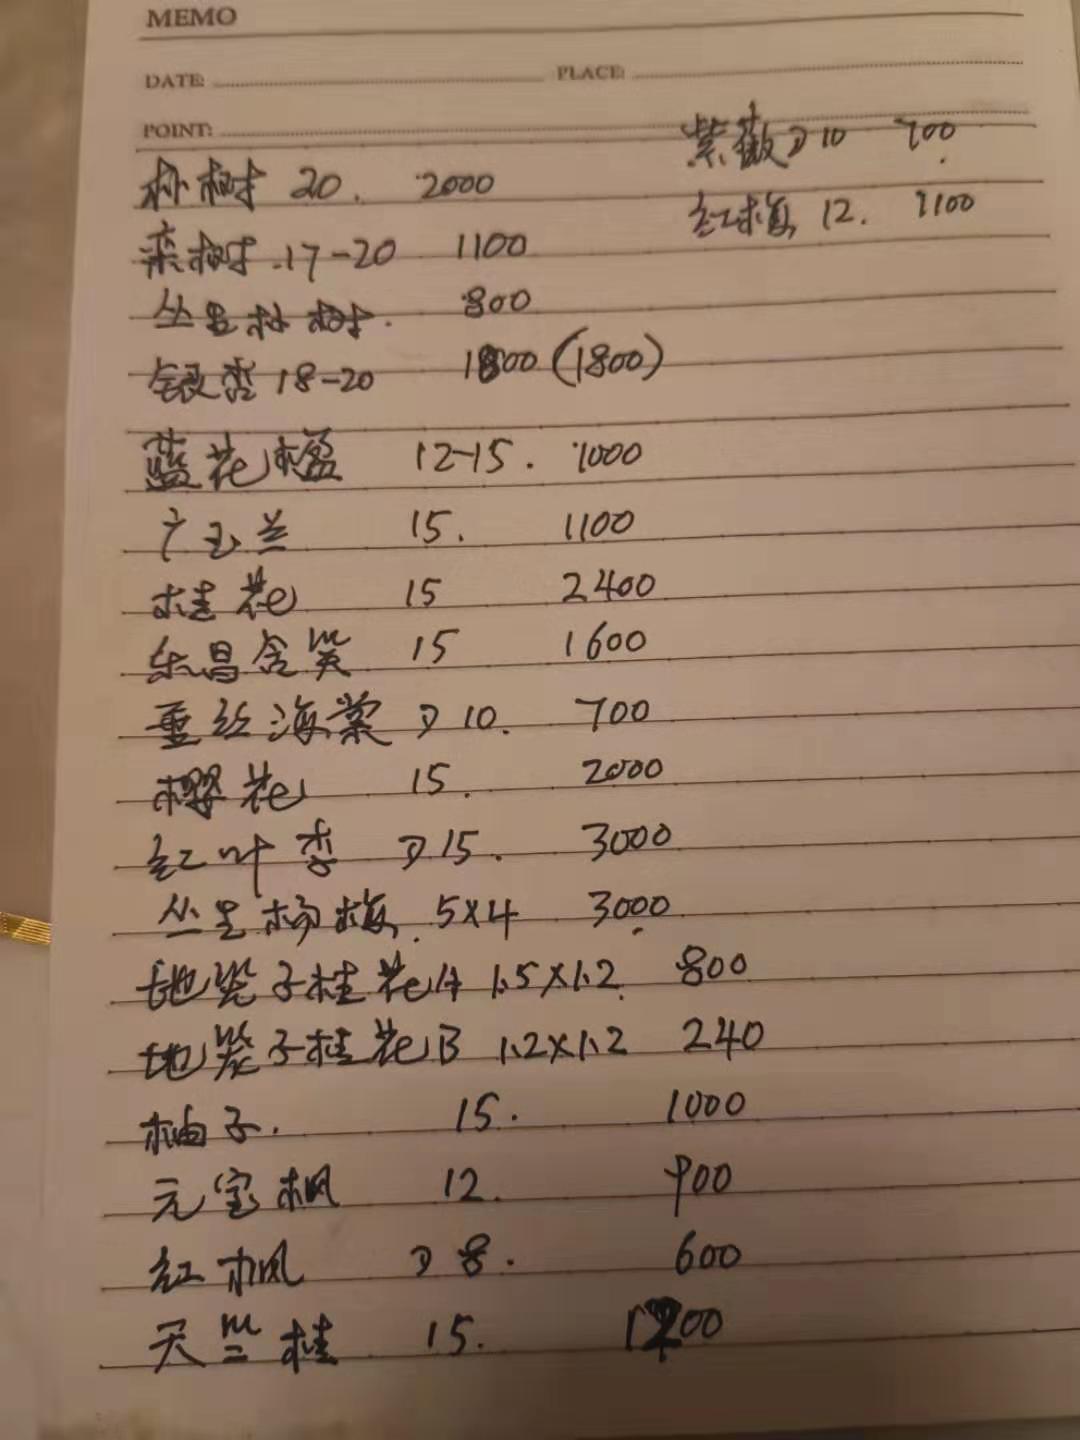 MEMO
DATE: PLACE:
POINT:
紫薇D10 700
朴树 20. 2000
红梅 12. 1100
栾树.17-20 1100
丛生朴树. 800
银杏18-20 1800(1800)
蓝花楹 12-15. 1000
广玉兰 15. 1100
桂花 15 2400
乐昌含笑 15 1600
垂丝海棠 D10. 700
樱花 15. 2000
红叶李 D15. 3000
丛生杨梅. 5×4 3000
地笼子桂花A 1.5×1.2 800
地笼子桂花B 1.2×1.2 240
柚子. 15. 1000
元宝枫 12. 900
红枫 D8. 600
天竺桂 15. 1200